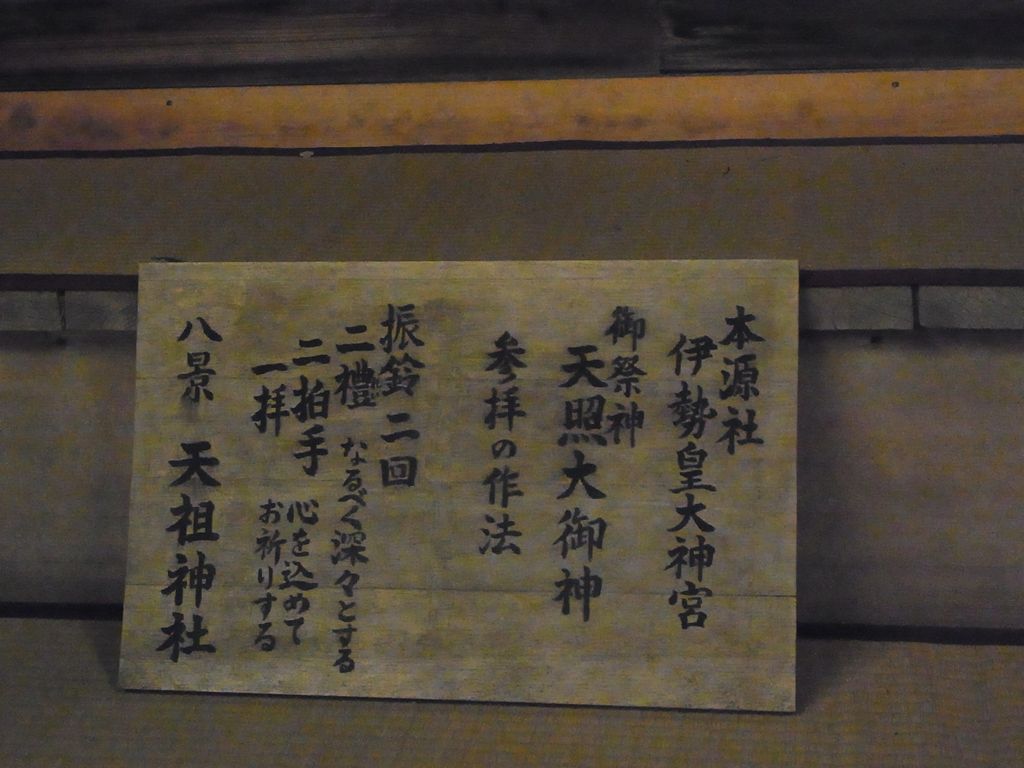 本源社
伊勢皇大神宮
御祭神
天照大御神
参拝の作法
振鈴二回
二禮 なるべく深々とする
二拍手 心を込めて
一拝 お祈りする
八景 天祖神社